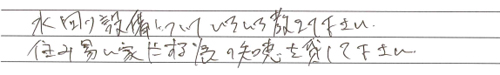 水回り設備についていろいろ教えて下さい.
住み易い家にする為の知恵を貸して下さい